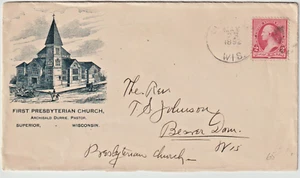 FIRST PRESBYTERIAN CHURCH,
ARCHIBALD DURRIE, PASTOR.
SUPERIOR, WISCONSIN.
WIS.
The Rev
T S Johnson,
Beaver Dam.
Wis
Presbyterian Church